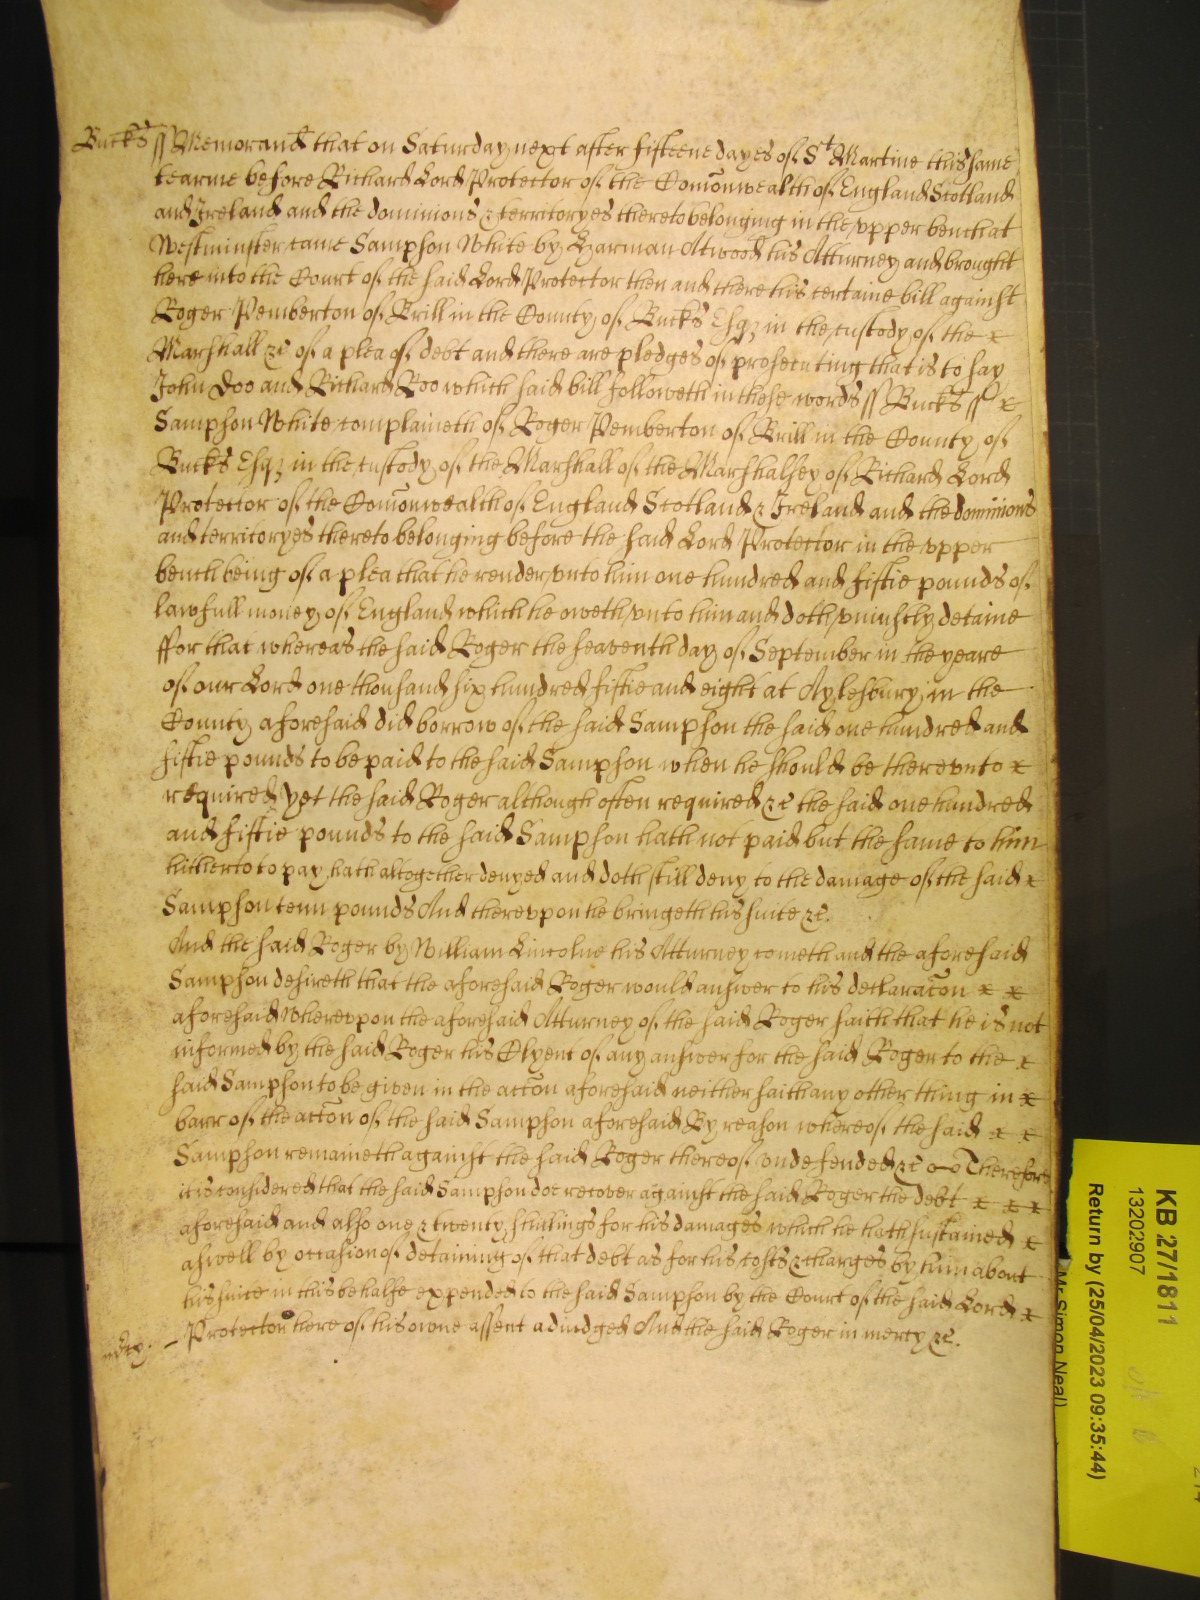 Bucks ss Memorand that on Saturday next after fifteene dayes of St Martine this same
tearme before Richard Lord Protector of the Comonwealth of England Scotland
and Ireland and the dominions & territoryes thereto belonging in the upper bench at
Westminster came Sampson White by Harman Atwood his Atturney and brought
here into the Court of the said Lord Protector then and there his certaine bill against
Roger Pemberton of Brill in the County of Bucks Esqz in the custody of the x
Marshall &c of a plea of debt and there are pledges of prosecuting that is to say
John Doo and Richard Roo which said bill followeth in these words ss Bucks ss x
Sampson White complaineth of Roger Pemberton of Brill in the County of
Bucks Esqz in the custody of the Marshall of the Marshalsey of Richard Lord
Protector of the Comonwealth of England Scotland & Ireland and the dominions
and territoryes thereto belonging before the said Lord Protector in the vpper
bench being of a plea that he render vnto him one hundred and fiftie pounds of
lawfull money of England which he oweth vnto him and doth vniustly detaine
ffor that whereas the said Roger the seaventh day of September in the yeare
of our Lord one thousand six hundred fiftie and eight at Aylesbury in the
County aforesaid did borrow of the said Sampson the said one hundred and
fiftie pounds to be paid to the said Sampson when he should be therevnto x
required yet the said Roger although often required &c the said one hundred
and fiftie pounds to the said Sampson hath not paid but the same to him
hitherto to pay hath altogether denyed and doth still deny to the damage of the said x
Sampson tenn pounds And therevpon he bringeth his suite &c.
And the said Roger by William Lincolne his Atturney cometh and the aforesaid
Sampson desireth that the aforesaid Roger would answer to his declaracon x x
aforesaid Wherevpon the aforesaid Atturney of the said Roger saith that he is not
informed by the said Roger his Clyent of any answer for the said Roger to the x
said Sampson to be given in the accon aforesaid neither saith any other thing in x
barr of the accon of the said Sampson aforesaid By reason whereof the said x x
Sampson remaineth against the said Roger thereof undefended &c Therefore
it is considered that the said Sampson doe recover against the said Roger the debt x x x
aforesaid and also one & twenty shillings for his damages which he hath sustained x
aswell by occasion of detaining of that debt as for his costs & charges by him about
his suite in this behalfe expended to the said Sampson by the Court of the said Lord x
Protector here of his owne assent adiudged And the said Roger in mercy &c.
KB 27/1811
13202907
Return by (25/04/2023 09:35:44)
Mr Simon Neal)